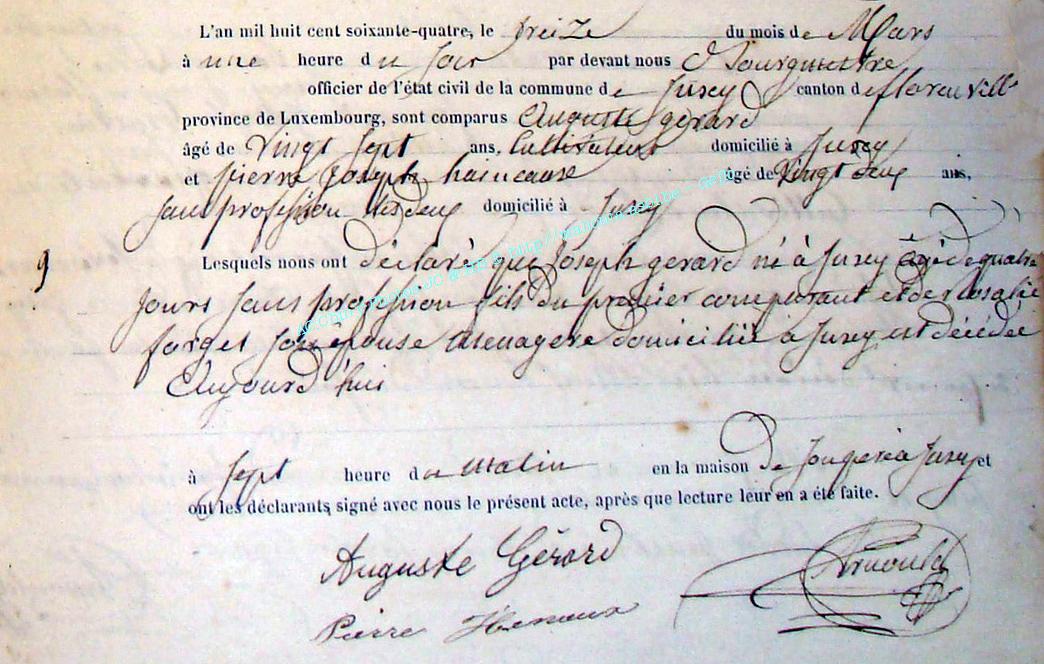 L'an mil huit cent soixante-quatre, le treize du mois de Mars
à une heure du soir par devant nous Bourgmestre
officier de l'état civil de la commune de Juseret canton de
province de Luxembourg, sont comparus Auguste gérard
âgé de Vingt Sept ans, Cultivateur domicilié à
et pierre Joseph haineaux âgé de Vingt deux ans,
sans profession les deux domicilié à
9 Lesquels nous ont déclaré que Joseph gerard né à âgé de quatre
jours sans profession fils du premier comparant et de rosalie
forget son épouse menagère domiciliée à est décédé
Aujourd'hui
à Sept heure du matin en la maison de son père à et
ont les déclarants signé avec nous le présent acte, après que lecture leur en a été faite.
Auguste Gérard
Pierre